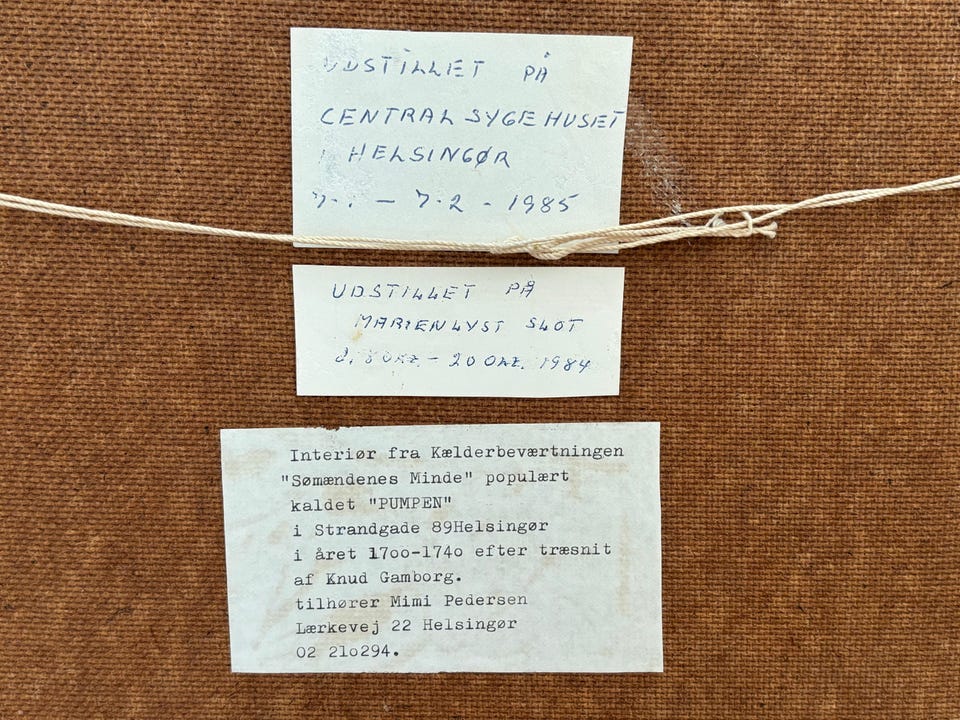 UDSTILLET PÅ
CENTRALSYGEHUSET
I HELSINGØR
7.1 — 7.2 - 1985
UDSTILLET PÅ
MARIENLYST SLOT
OKT. — 20 OKT. 1984
Interiør fra Kælderbeværtningen
"Sømændenes Minde" populært
kaldet "PUMPEN"
i Strandgade 89Helsingør
i året 17oo-174o efter træsnit
af Knud Gamborg.
tilhører Mimi Pedersen
Lærkevej 22 Helsingør
O2 21o294.